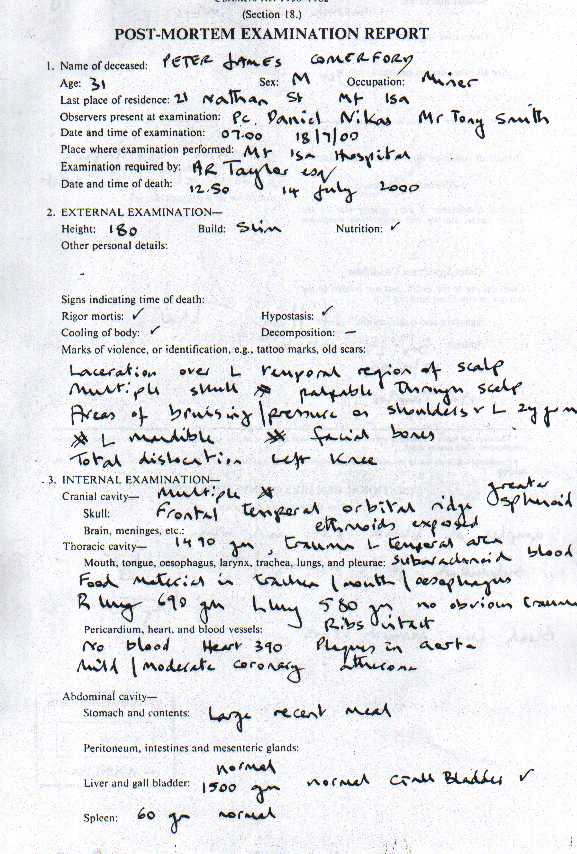 (Section 18.)
POST-MORTEM EXAMINATION REPORT
1. Name of deceased: PETER JAMES COMERFORD
Age: 31 Sex: M Occupation: Miner
Last place of residence: 21 Nathan St Mt Isa
Observers present at examination: Pc. Daniel Nikas Mr Tony Smith
Date and time of examination: 07.00 18/7/00
Place where examination performed: Mt Isa Hospital
Examination required by: AR Taylor esq
Date and time of death: 12.50 14 July 2000
2. EXTERNAL EXAMINATION—
Height: 180 Build: Slim Nutrition: ✓
Other personal details:
-
Signs indicating time of death:
Rigor mortis: ✓ Hypostasis: ✓
Cooling of body: ✓ Decomposition: —
Marks of violence, or identification, e.g., tattoo marks, old scars:
Laceration over L temporal region of scalp
Multiple skull # palpable through scalp
Areas of bruising/pressure on shoulders & L zygoma
# L mandible # facial bones
Total dislocation Left Knee
3. INTERNAL EXAMINATION—
Cranial cavity— Multiple # greater
Skull: Frontal temporal orbital ridge sphenoid
Brain, meninges, etc.: ethmoids exposed
Thoracic cavity— 1490 gm, trauma L temporal area
Mouth, tongue, oesophagus, larynx, trachea, lungs, and pleurae: subarachnoid blood
Food material in trachea/mouth/oesophagus
R lung 690 gm L lung 580 gm no obvious trauma
Pericardium, heart, and blood vessels: Ribs intact
No blood Heart 390 Plaques in aorta
Mild/moderate coronary atheroma
Abdominal cavity—
Stomach and contents: Large recent meal
Peritoneum, intestines and mesenteric glands:
normal
Liver and gall bladder: 1500 gm normal Gall Bladder ✓
Spleen: 60 gm normal